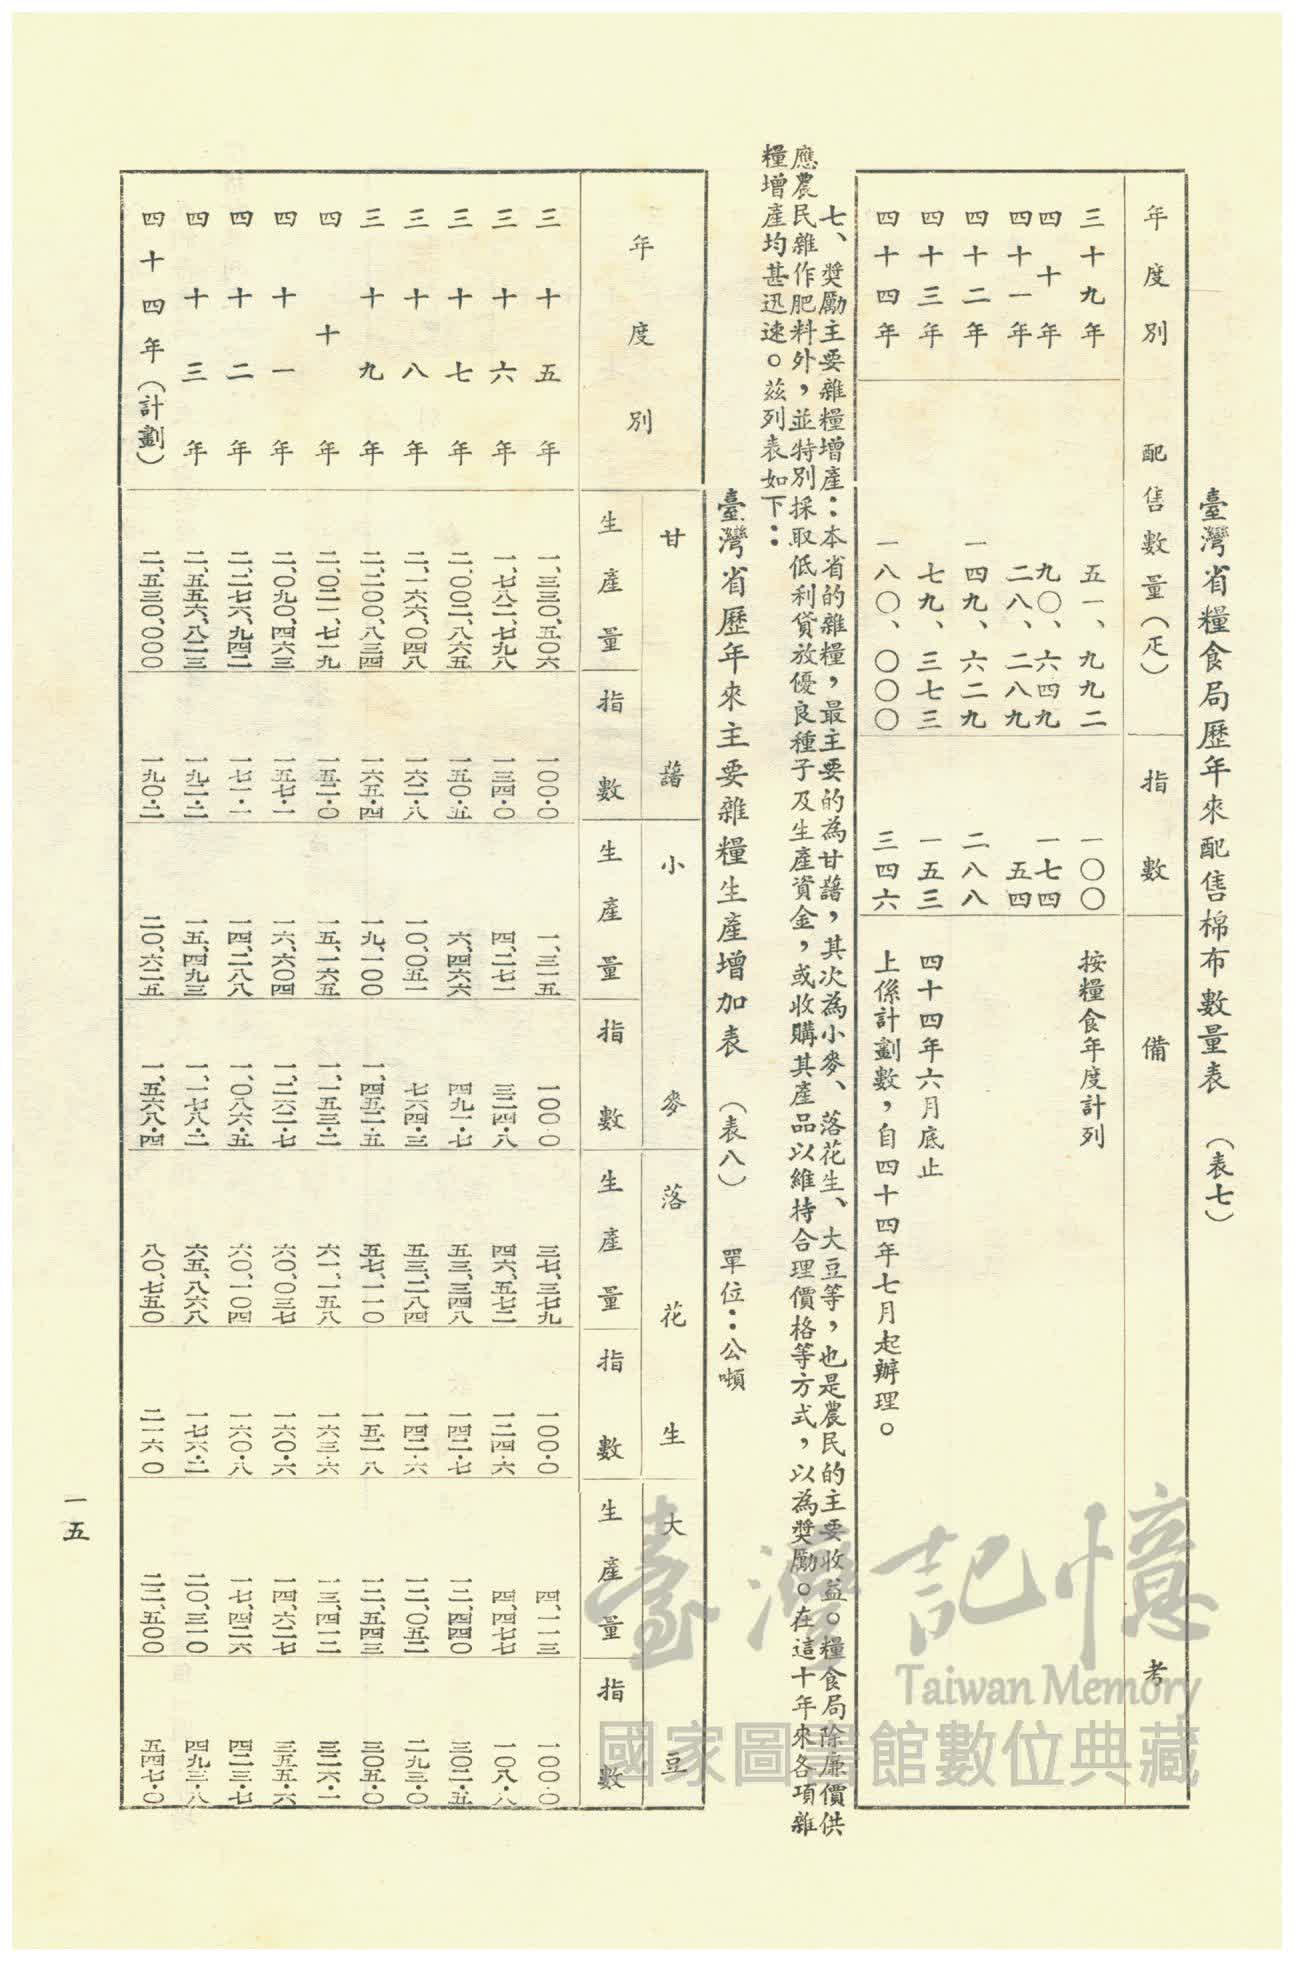 臺灣省糧食局歷年來配售棉布數量表　（表七）
年度別　配售數量（疋）　指數　備考
三十九年　五一、九九二　一〇〇　按糧食年度計列
四十年　九〇、六四九　一七四
四十一年　二八、二八九　五四
四十二年　一四九、六二九　二八八
四十三年　七九、三七三　一五三　四十四年六月底止
四十四年　一八〇、〇〇〇　三四六　上係計劃數，自四十四年七月起辦理。
七、獎勵主要雜糧增產：本省的雜糧，最主要的為甘藷，其次為小麥、落花生、大豆等，也是農民的主要收益。糧食局除廉價供
應農民雜作肥料外，並特別採取低利貸放優良種子及生產資金，或收購其產品以維持合理價格等方式，以為獎勵。在這十年來各項雜
糧增產均甚迅速。茲列表如下：
臺灣省歷年來主要雜糧生產增加表　（表八）　單位：公噸
年度別　甘藷　小麥　落花生　大豆
生產量　指數　生產量　指數　生產量　指數　生產量　指數
三十五年　一、三三〇、五〇六　一〇〇・〇　一、三一五　一〇〇・〇　三七、三七九　一〇〇・〇　四、一一三　一〇〇・〇
三十六年　一、七八二、七九八　一三四・〇　四、二七一　三二四・八　四六、五七二　一二四・六　四、四七七　一〇八・八
三十七年　二、〇〇二、八六五　一五〇・五　六、四六六　四九一・七　五三、三四八　一四二・七　一二、四四〇　三〇二・五
三十八年　二、一六六、〇四八　一六二・八　一〇、〇五一　七六四・三　五三、二八四　一四二・六　一二、〇五二　二九三・〇
三十九年　二、二〇〇、八三四　一六五・四　一九、一〇〇　一、四五二・五　五七、一一〇　一五二・八　一二、五四三　三〇五・〇
四十年　二、〇二一、七一九　一五二・〇　一五、一六五　一、一五三・二　六一、一五八　一六三・六　一三、四一二　三二六・一
四十一年　二、〇九〇、四六三　一五七・一　一六、六〇四　一、二六二・七　六〇、〇三七　一六〇・六　一四、六二七　三五五・六
四十二年　二、二七六、九四二　一七一・一　一四、二八八　一、〇八六・五　六〇、一〇四　一六〇・八　一七、四二六　四二三・七
四十三年　二、五五六、八二三　一九二・二　一五、四九三　一、一七八・二　六五、八六八　一七六・二　二〇、三一〇　四九三・八
四十四年（計劃）　二、五三〇、〇〇〇　一九〇・二　二〇、六二五　一、五六八・四　八〇、七五〇　二一六〇　二二、五〇〇　五四七・〇
一五
臺灣記憶
Taiwan Memory
國家圖書館數位典藏